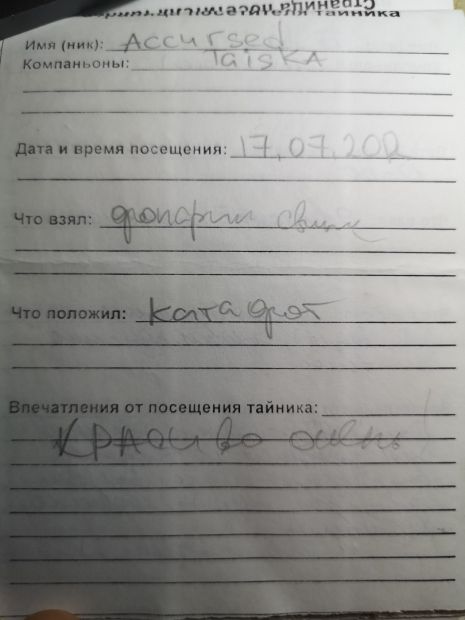 Страница посетителя тайника
Имя (ник): Accursed
Компаньоны: TaisKA
Дата и время посещения: 17.07.202
Что взял: фонарик
Что положил: катафот
Впечатления от посещения тайника:
Красиво очень!